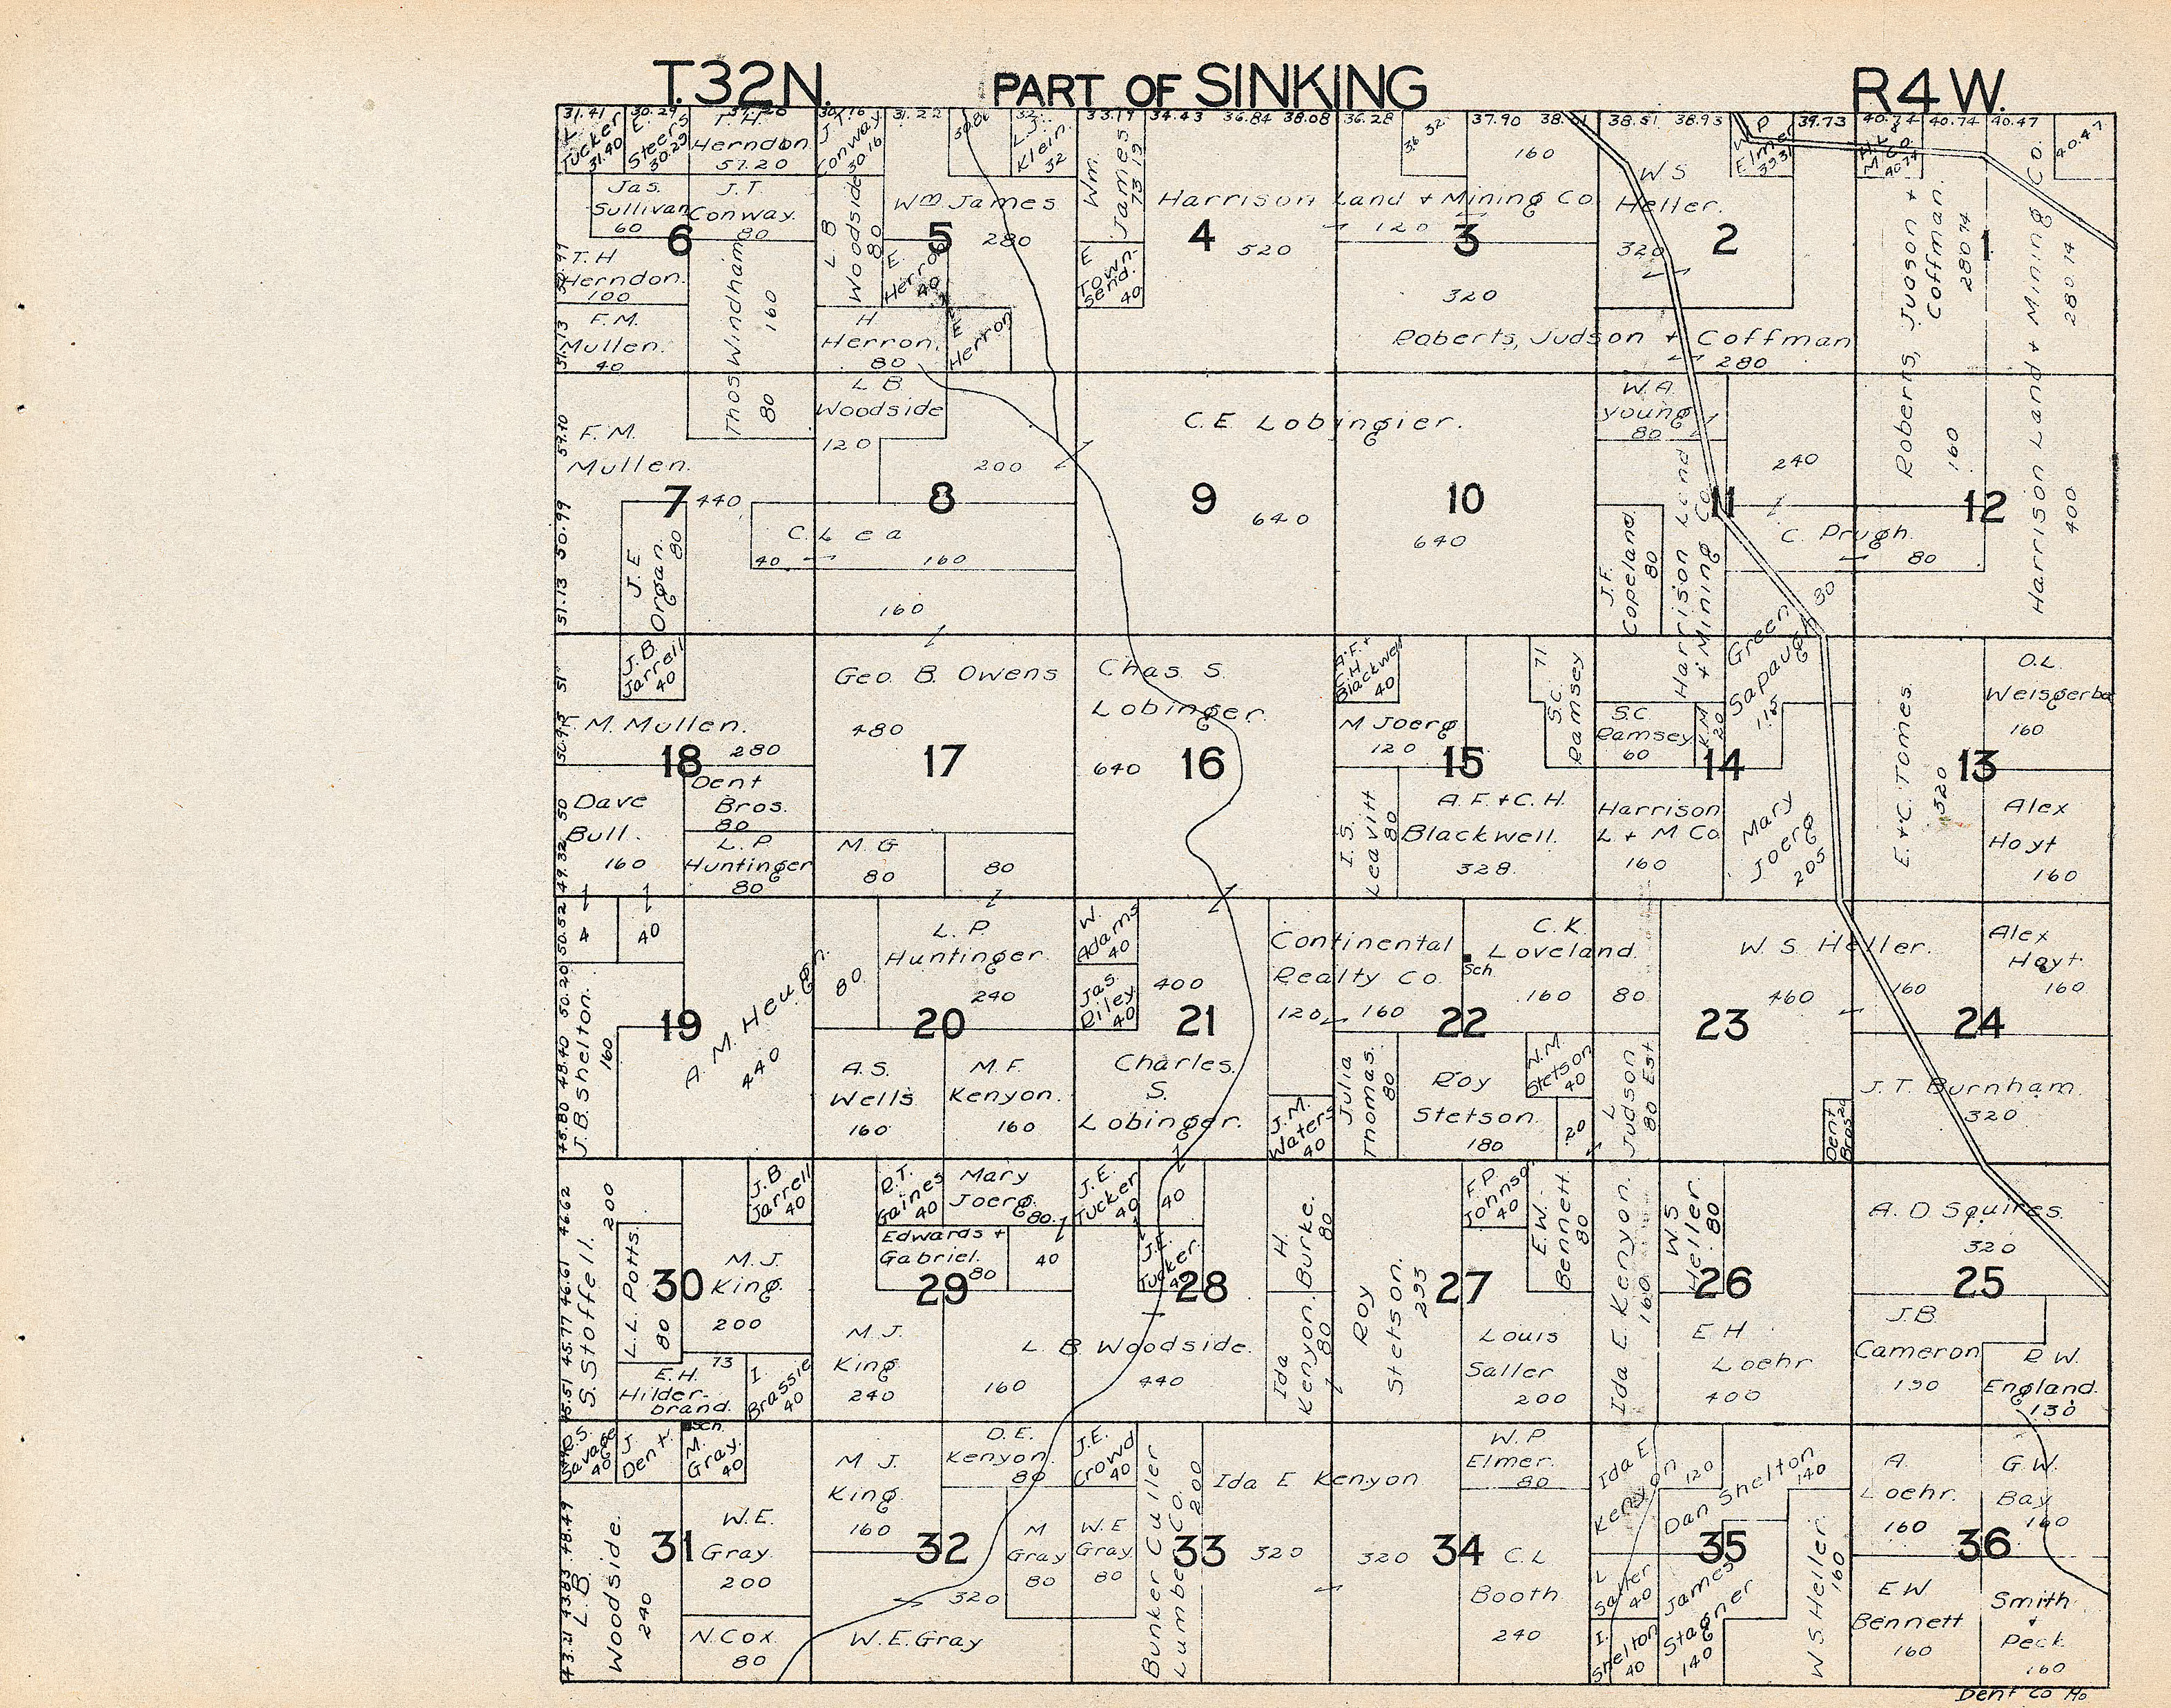 T.32N.
PART OF SINKING
R4W.
31.41
30.29
31.22
32
33.19
34.43
36.84
38.08
36.28
37.90
38.51
38.93
39.73
40.74
40.74
40.47
L.
Tucker
31.40
E.
Steers
30.29
T. H.
Herndon
57.20
J. T.
Conway
30.16
L. J.
Klein.
32
Wm.
James
73.19
36.32
160
W S
Heller.
320
W P
Elmer
39.31
H. L &
M Co.
40.74
40.47
Jas.
Sullivan
60
J. T.
Conway.
80
L B
Woodside
80
Wm James
280
Harrison Land + Mining Co
520
120
6
5
4
3
2
1
T. H
Herndon.
100
Thos Windham
160
80
E.
Herron
40
E
Town-
send.
40
320
Roberts, Judson +
Coffman.
280.74
Harrison Land + Mining Co.
280.14
F. M.
Mullen.
40
H
Herron.
80
E
Herron
Roberts, Judson + Coffman
280
F. M.
Mullen.
440
L B
Woodside
120
200
C. E Lobingier.
640
640
W. A.
Young
80
240
Roberts,
160
400
7
8
9
10
11
12
J. E
Organ.
80
C. Lea
40
160
160
J. F.
Copeland
80
Harrison Land
+ Mining Co
C. Prugh.
80
30
J. B.
Jarrell
40
Geo. B. Owens
480
Chas S.
Lobinger.
640
A. F. +
C. H.
Blackwell
40
M Joerg
120
S.C. 71
Ramsey
S.C.
Ramsey
60
K. M
20
Green
Sapaugh
115
E. + C. Tomes
320
O. L.
Weisgerber
160
F. M. Mullen.
280
18
17
16
15
14
13
Dave
Bull.
160
Dent
Bros.
80
L. P.
Huntinger
80
M. G
80
80
I. S.
Leavitt
80
A. F. + C. H.
Blackwell.
328.
Harrison
L + M Co
160
Mary
Joerg
205
Alex
Hoyt
160
40
J. B. Shelton.
160
A. M. Heugh.
440
80
L. P.
Huntinger
240
W.
Adams
40
Jas.
Riley
40
400
Continental
Realty Co.
120
160
Sch.
C. K.
Loveland.
160
80
W. S. Heller.
460
160
Alex
Hoyt.
160
19
20
21
22
23
24
A. S.
Wells
160
M. F.
Kenyon.
160
Charles.
S.
Lobinger.
J. M.
Waters
40
Julia
Thomas.
80
Roy
Stetson.
180
N. M
Stetson
40
20
L
Judson Est
80
Dent
Bros 20
J. T. Burnham.
320
S. Stoffell.
200
L. L. Potts.
80
J. B.
Jarrell
40
M. J.
King.
200
R. T.
Gaines
40
Mary
Joerg.
80
Edwards +
Gabriel.
80
40
J. E.
Tucker
40
40
J. E.
Tucker
40
H.
Burke.
80
Roy
Stetson.
293
F. P
Johnson
40
E. W.
Bennett
80
Ida E Kenyon.
160
W S
Heller.
80
A. D Squires.
320
30
29
28
27
26
25
E. H.
Hilder-
brand.
73
I.
Brassie
40
M. J.
King
240
160
L. B Woodside.
440
Ida
Kenyon.
80
Louis
Saller
200
E H
Loehr
400
J. B.
Cameron
190
R W.
England.
130
Sch.
Savage
40
J
Dent.
M.
Gray.
40
M J.
King.
160
D. E.
Kenyon.
80
J. E.
Crowd
40
Bunker Culler
Lumber Co.
200
Ida E Kenyon
320
320
W. P
Elmer.
80
Ida E
Kenyon
120
Dan Shelton
140
A.
Loehr.
160
G. W.
Bay
160
31
32
33
34
35
36
L. B.
Woodside.
240
W. E.
Gray.
200
N. Cox
80
W. E. Gray
320
M
Gray
80
W. E
Gray
80
C. L
Booth
240
L
Saller
40
I.
Shelton
40
James
Stagner
140
W S. Heller.
160
E W
Bennett
160
Smith
+
Peck.
160
Dent Co Mo